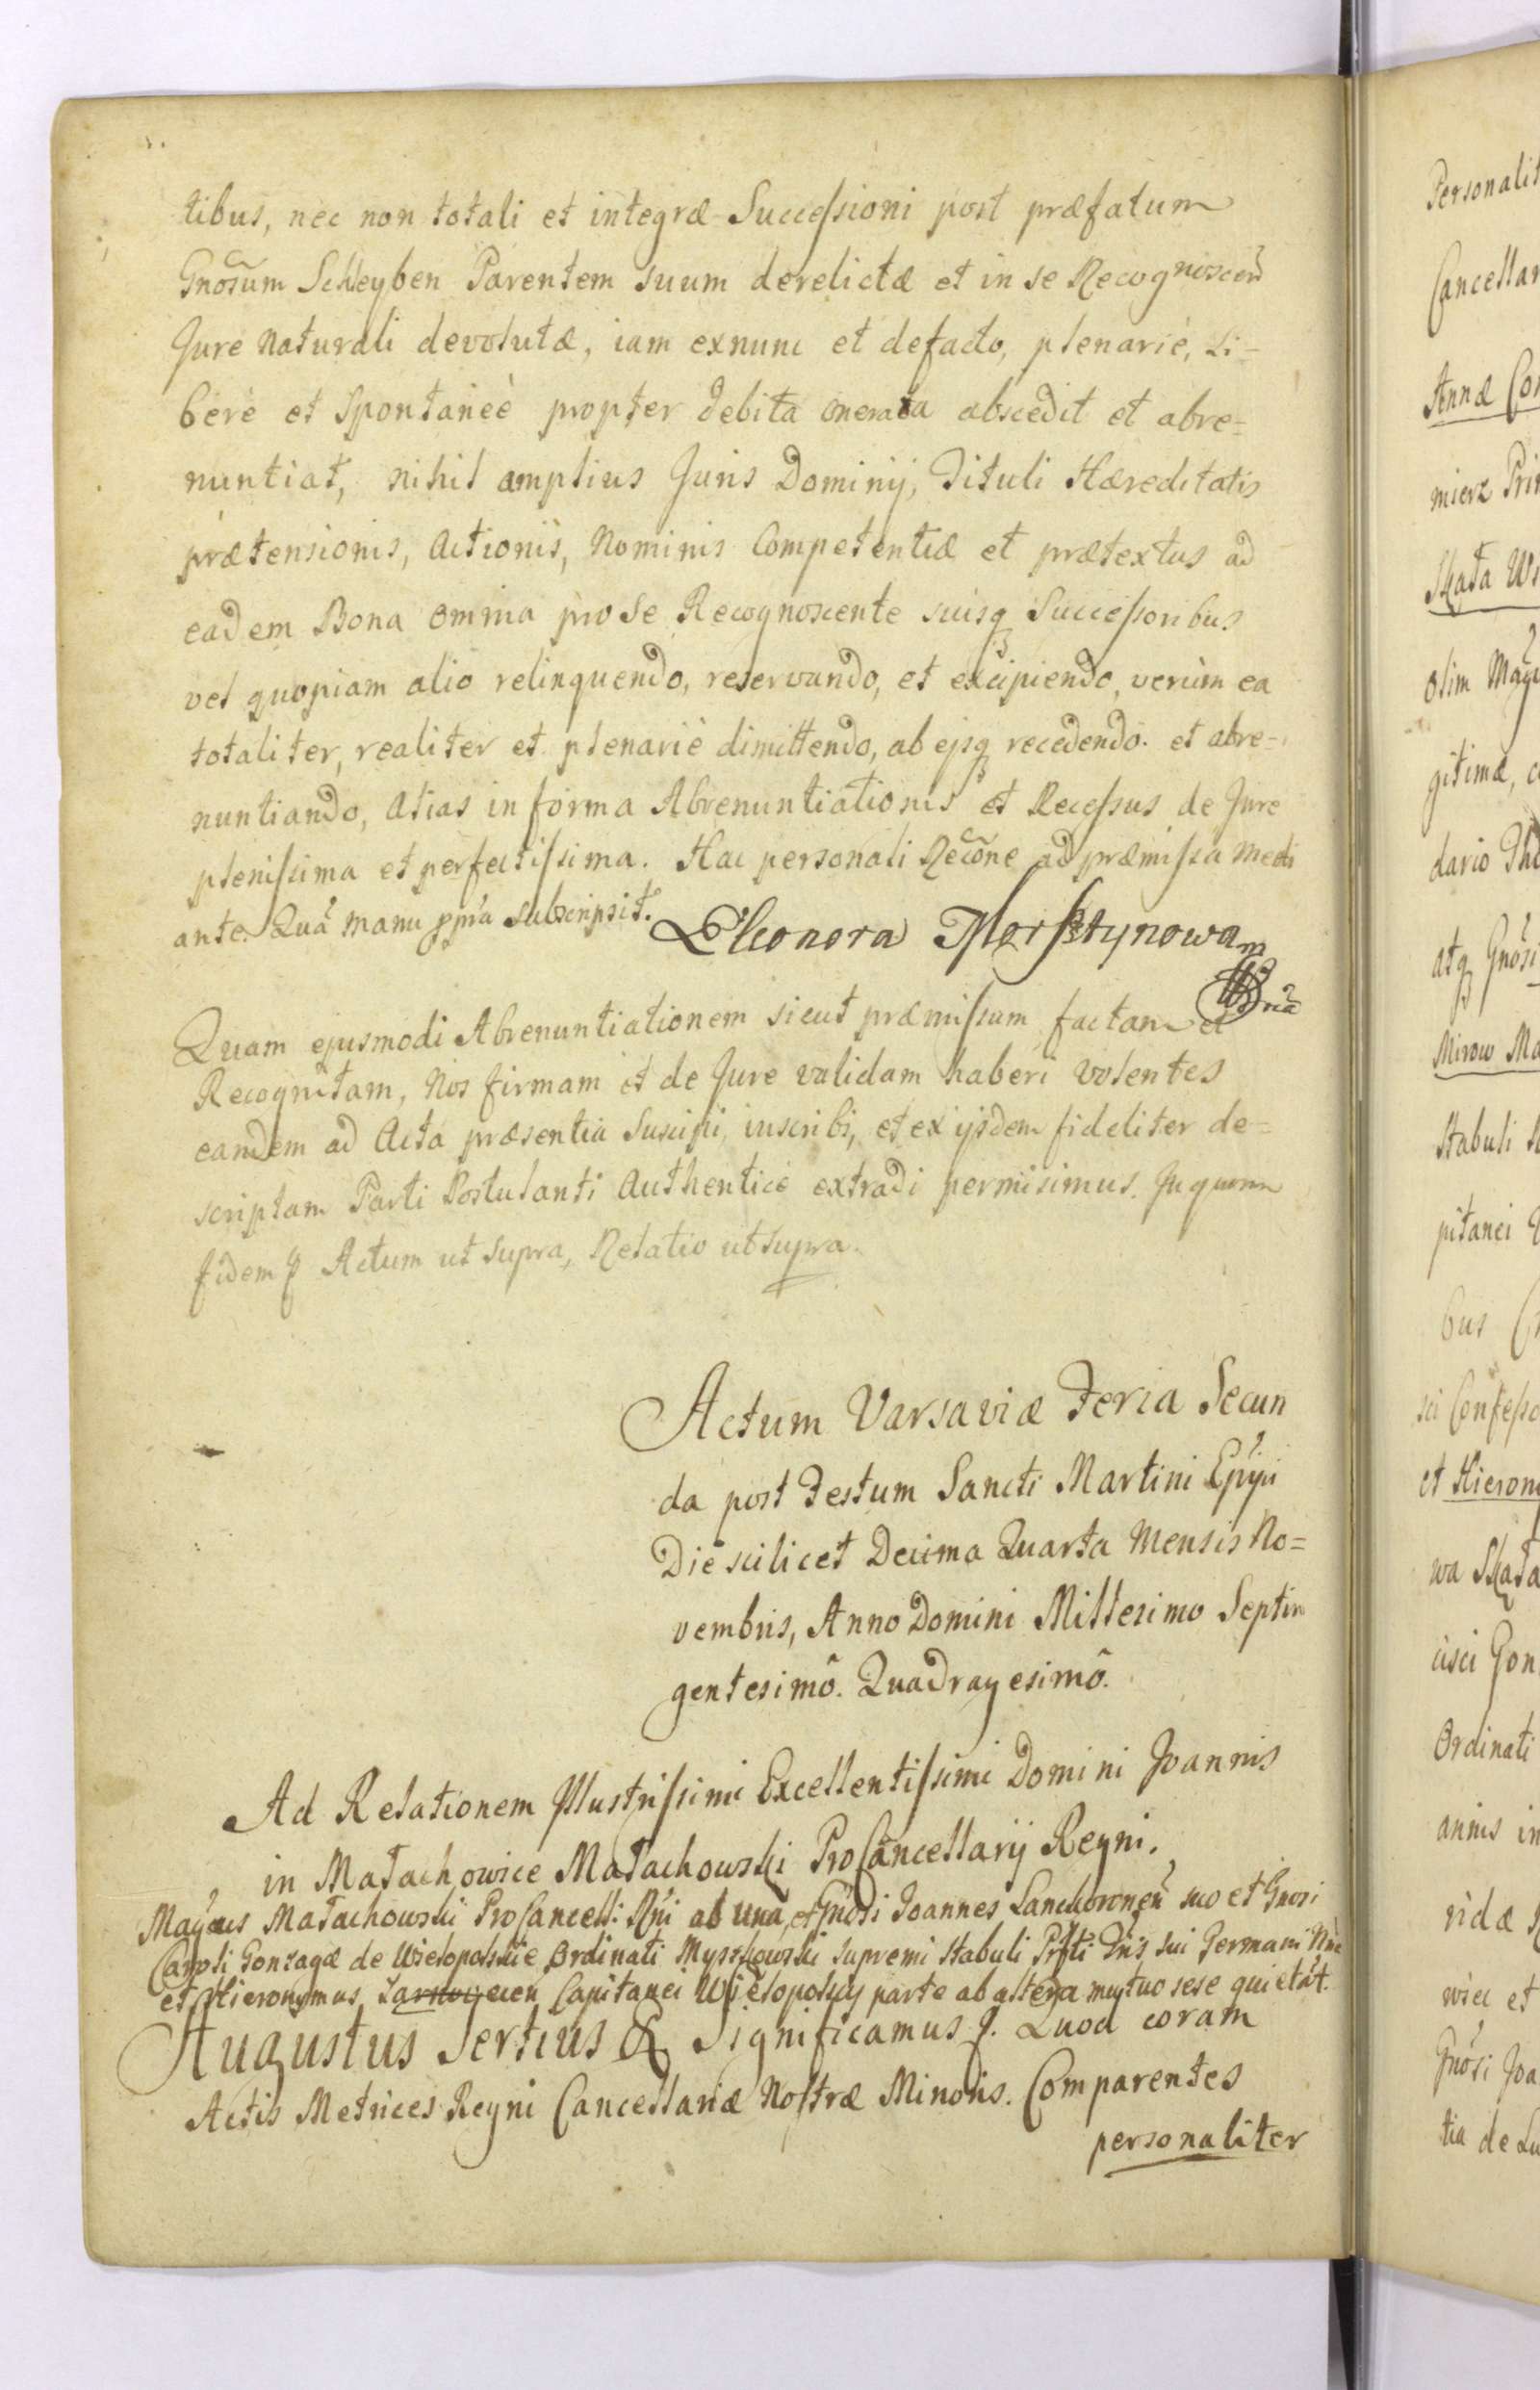 tibus, nec non totali et integræ Successioni post præfatum
Gnosum Schleyben Parentem suum derelictæ et in se Recognoscen
Jure Naturali devolutæ, iam exnunc et defacto, plenarie, Li=
berè et Spontaneè propter debita onerata abscedit et abre=
nuntiat, nihil amplius Juris Dominij, Tituli Hæreditatis
prætensionis, Actionis, Nominis Competentiæ et prætextus ad
eadem Bona omnia pro Se Recognoscente suisq Successoribus
vel quopiam alio relinquendo, reservando, et excipiendo, verùm ea
totaliter, realiter et plenariè dimittendo, ab ejsq recedendo. et abre=
nuntiando, Alias in forma Abrenuntiationis et Recessus de Jure
plenissima et perfectissima. Hac personali Recōne ad præmissa Medi
ante. Quā manu ppria subscripsit. Eleonora Morsztynowa
Quam ejusmodi Abrenuntiationem sicut præmissum factam et
Recognitam, Nos firmam et de Jure validam haberi volentes
eandem ad Acta præsentia Suscipi, inscribi, et ex ijsdem fideliter de=
scriptam Parti Postulanti Authenticè extradi permisimus. In quorum
fidem &. Actum ut supra, Relatio ut supra.
Actum Varsaviæ Feria Secun
da post Festum Sancti Martini Epīpi
Die scilicet Decima Quarta Mensis No=
vembris, Anno Domini Millesimo Septin
gentesimō. Quadragesimō.
Ad Relationem Illustrissimi Excellentissimi Domini Joannis
in Małachowice Małachowski ProCancellarij Regni.
Małachowski ProCancell: Rni ab una, et Gnosi Joannes Lanckoronen suo et Gnosi
Caroli Gonzagæ de Wielopolskie Ordinati Myszkowski Supremi Stabuli Prfti sui Germani
et Hieronymus Capitanei Wielopolscy parte ab altera mutuo sese quietāt.
Augustus Tertius & Significamus &. Quod coram
Actis Metrices Regni Cancellariæ Nostræ Minoris. Comparentes
personaliter
Personalit
Cancellar
Annæ Co
mierz Pri
Skała
olim
gitimæ, c
dario
atq Gnosi
Mirow Ma
Stabuli
pitanei
bus
sci Confesso
et Hierony
wa Skała
cisci Gon
Ordinati
annis in
ridæ
wiec et
Gnosi Joa
tia de Lu